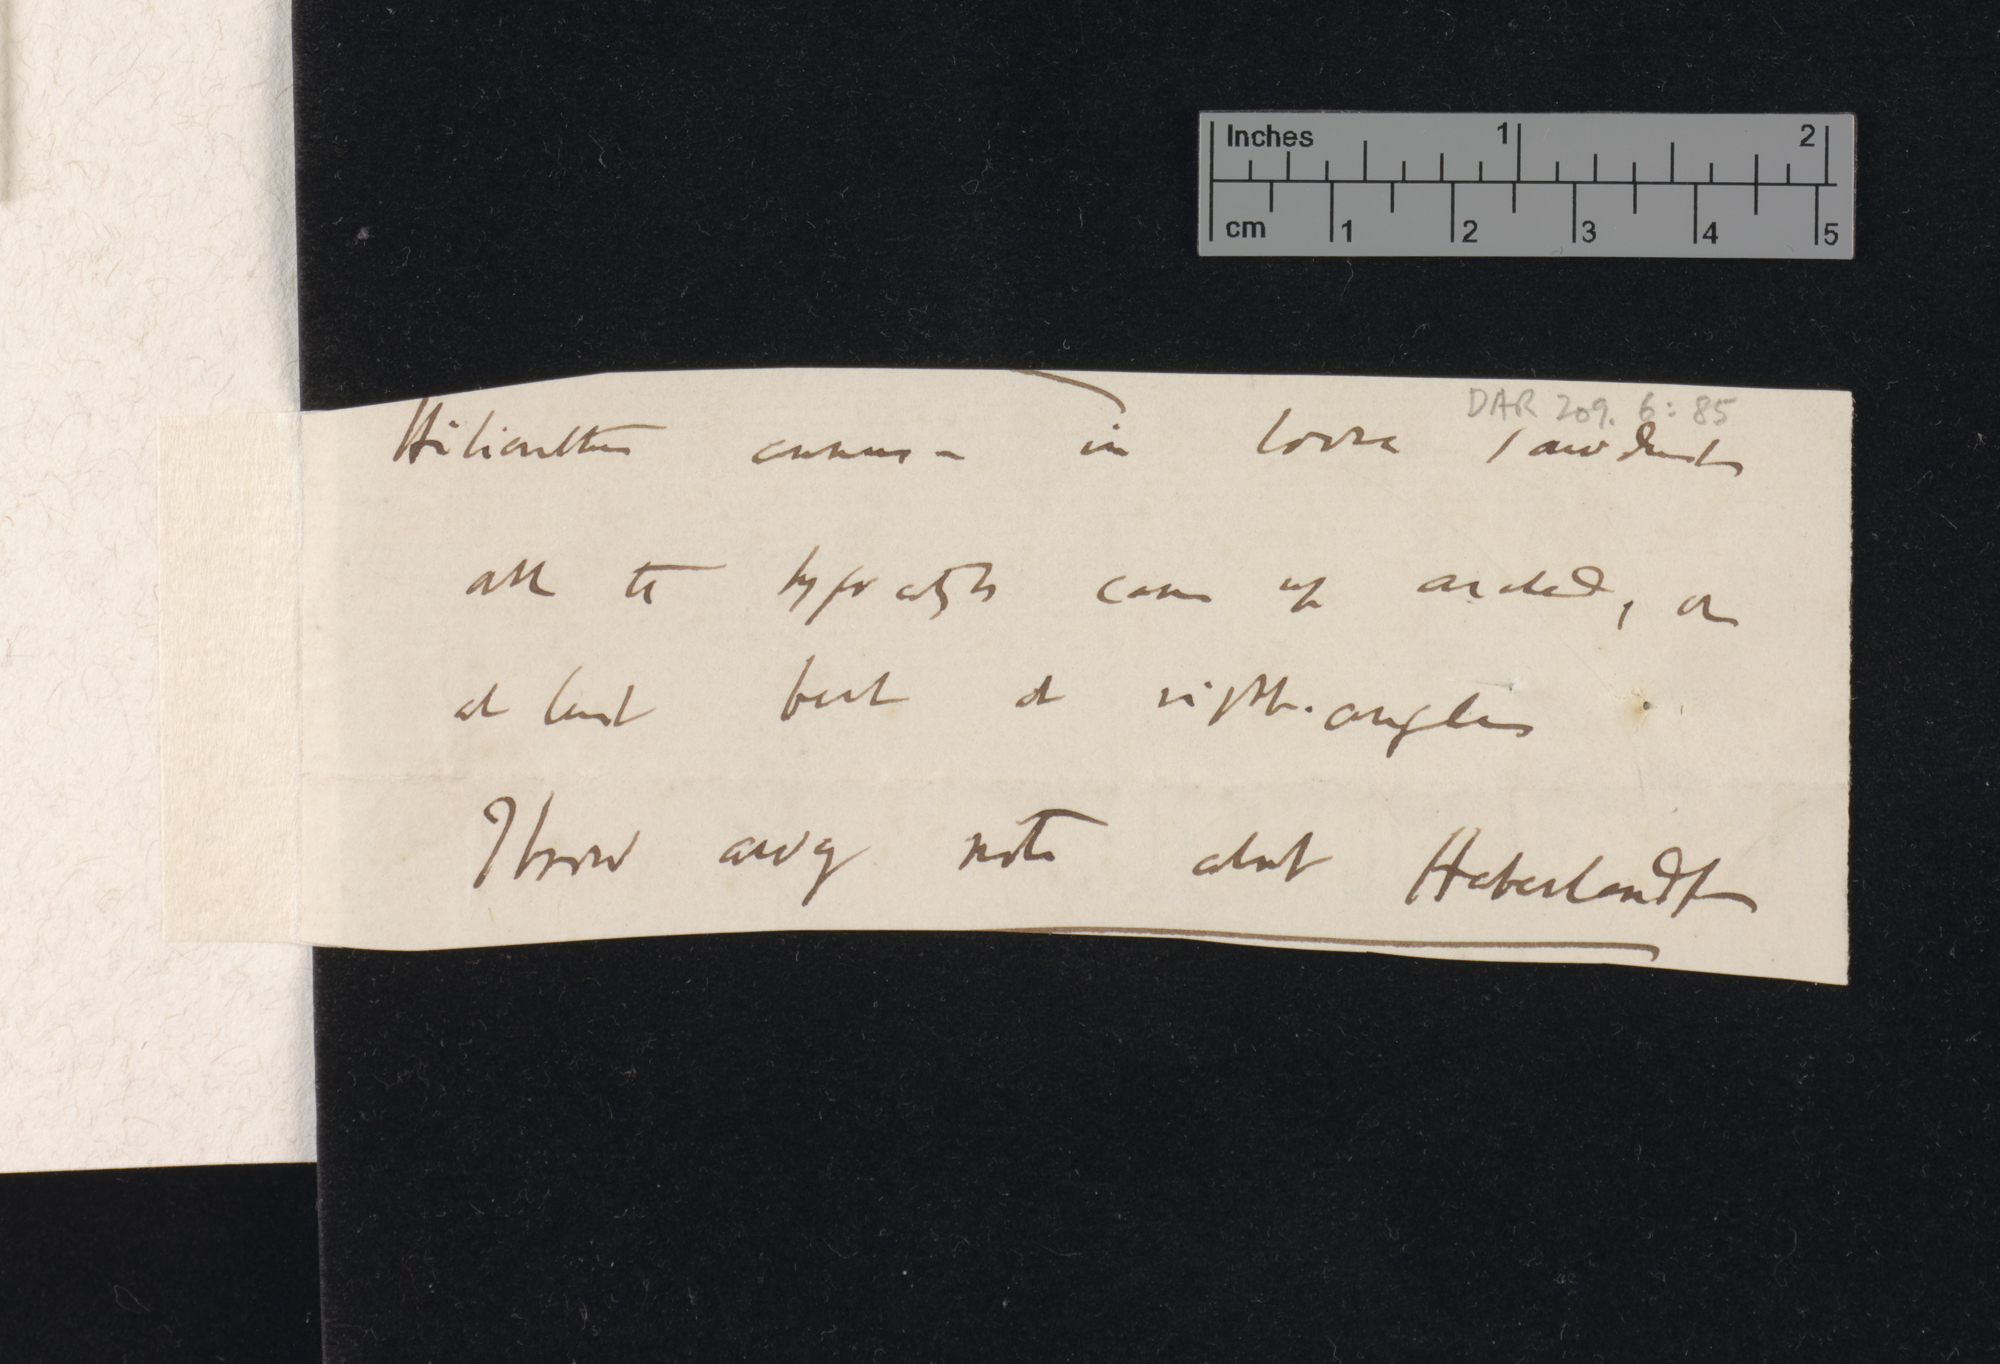 Inches 1 2
cm 1 2 3 4 5
DAR 209. 6: 85
Hilianthus annuus – in loose sawdust
all the hypocotyls came up arched, or
at least bent at right-angles
Throw away note about Haberlandt